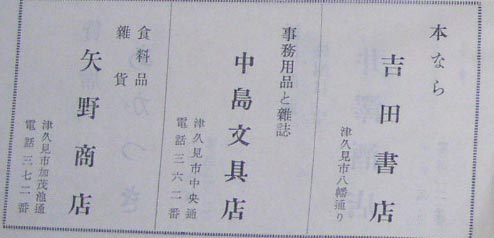 本なら
吉田書店
津久見市八幡通り
事務用品と雑誌
中島文具店
津久見市中央通
電話三六二番
食料品
雑貨
矢野商店
津久見市加茂池通
電話三七二番